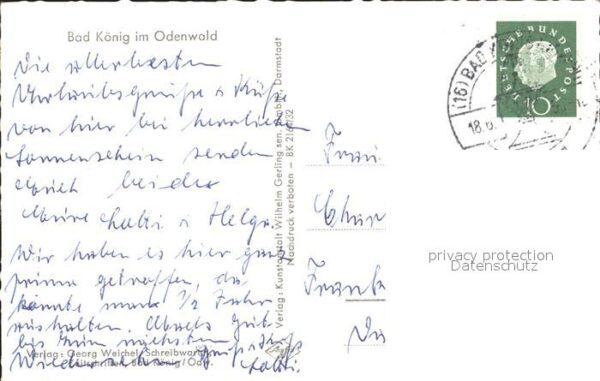 Bad König im Odenwald
Die allerbesten
Urlaubsgrüße + Küße
von hier bei herrlichem
Sonnenschein senden
beide
+ Helga.
Wir haben es hier ganz
prima getroffen, da
könnte man 1/2 Jahr
aushalten. Alles Gute
bis zum nächsten
Verlag: Georg Weichel, Schreibwaren
Bad König/Odw.
Verlag: Kunstanstalt Wilhelm Gerling sen. GmbH., Darmstadt
Nachdruck verboten - BK 2164/32
Frau
Frank
DEUTSCHE BUNDESPOST
10
(16) BAD
18.6.
privacy protection
Datenschutz